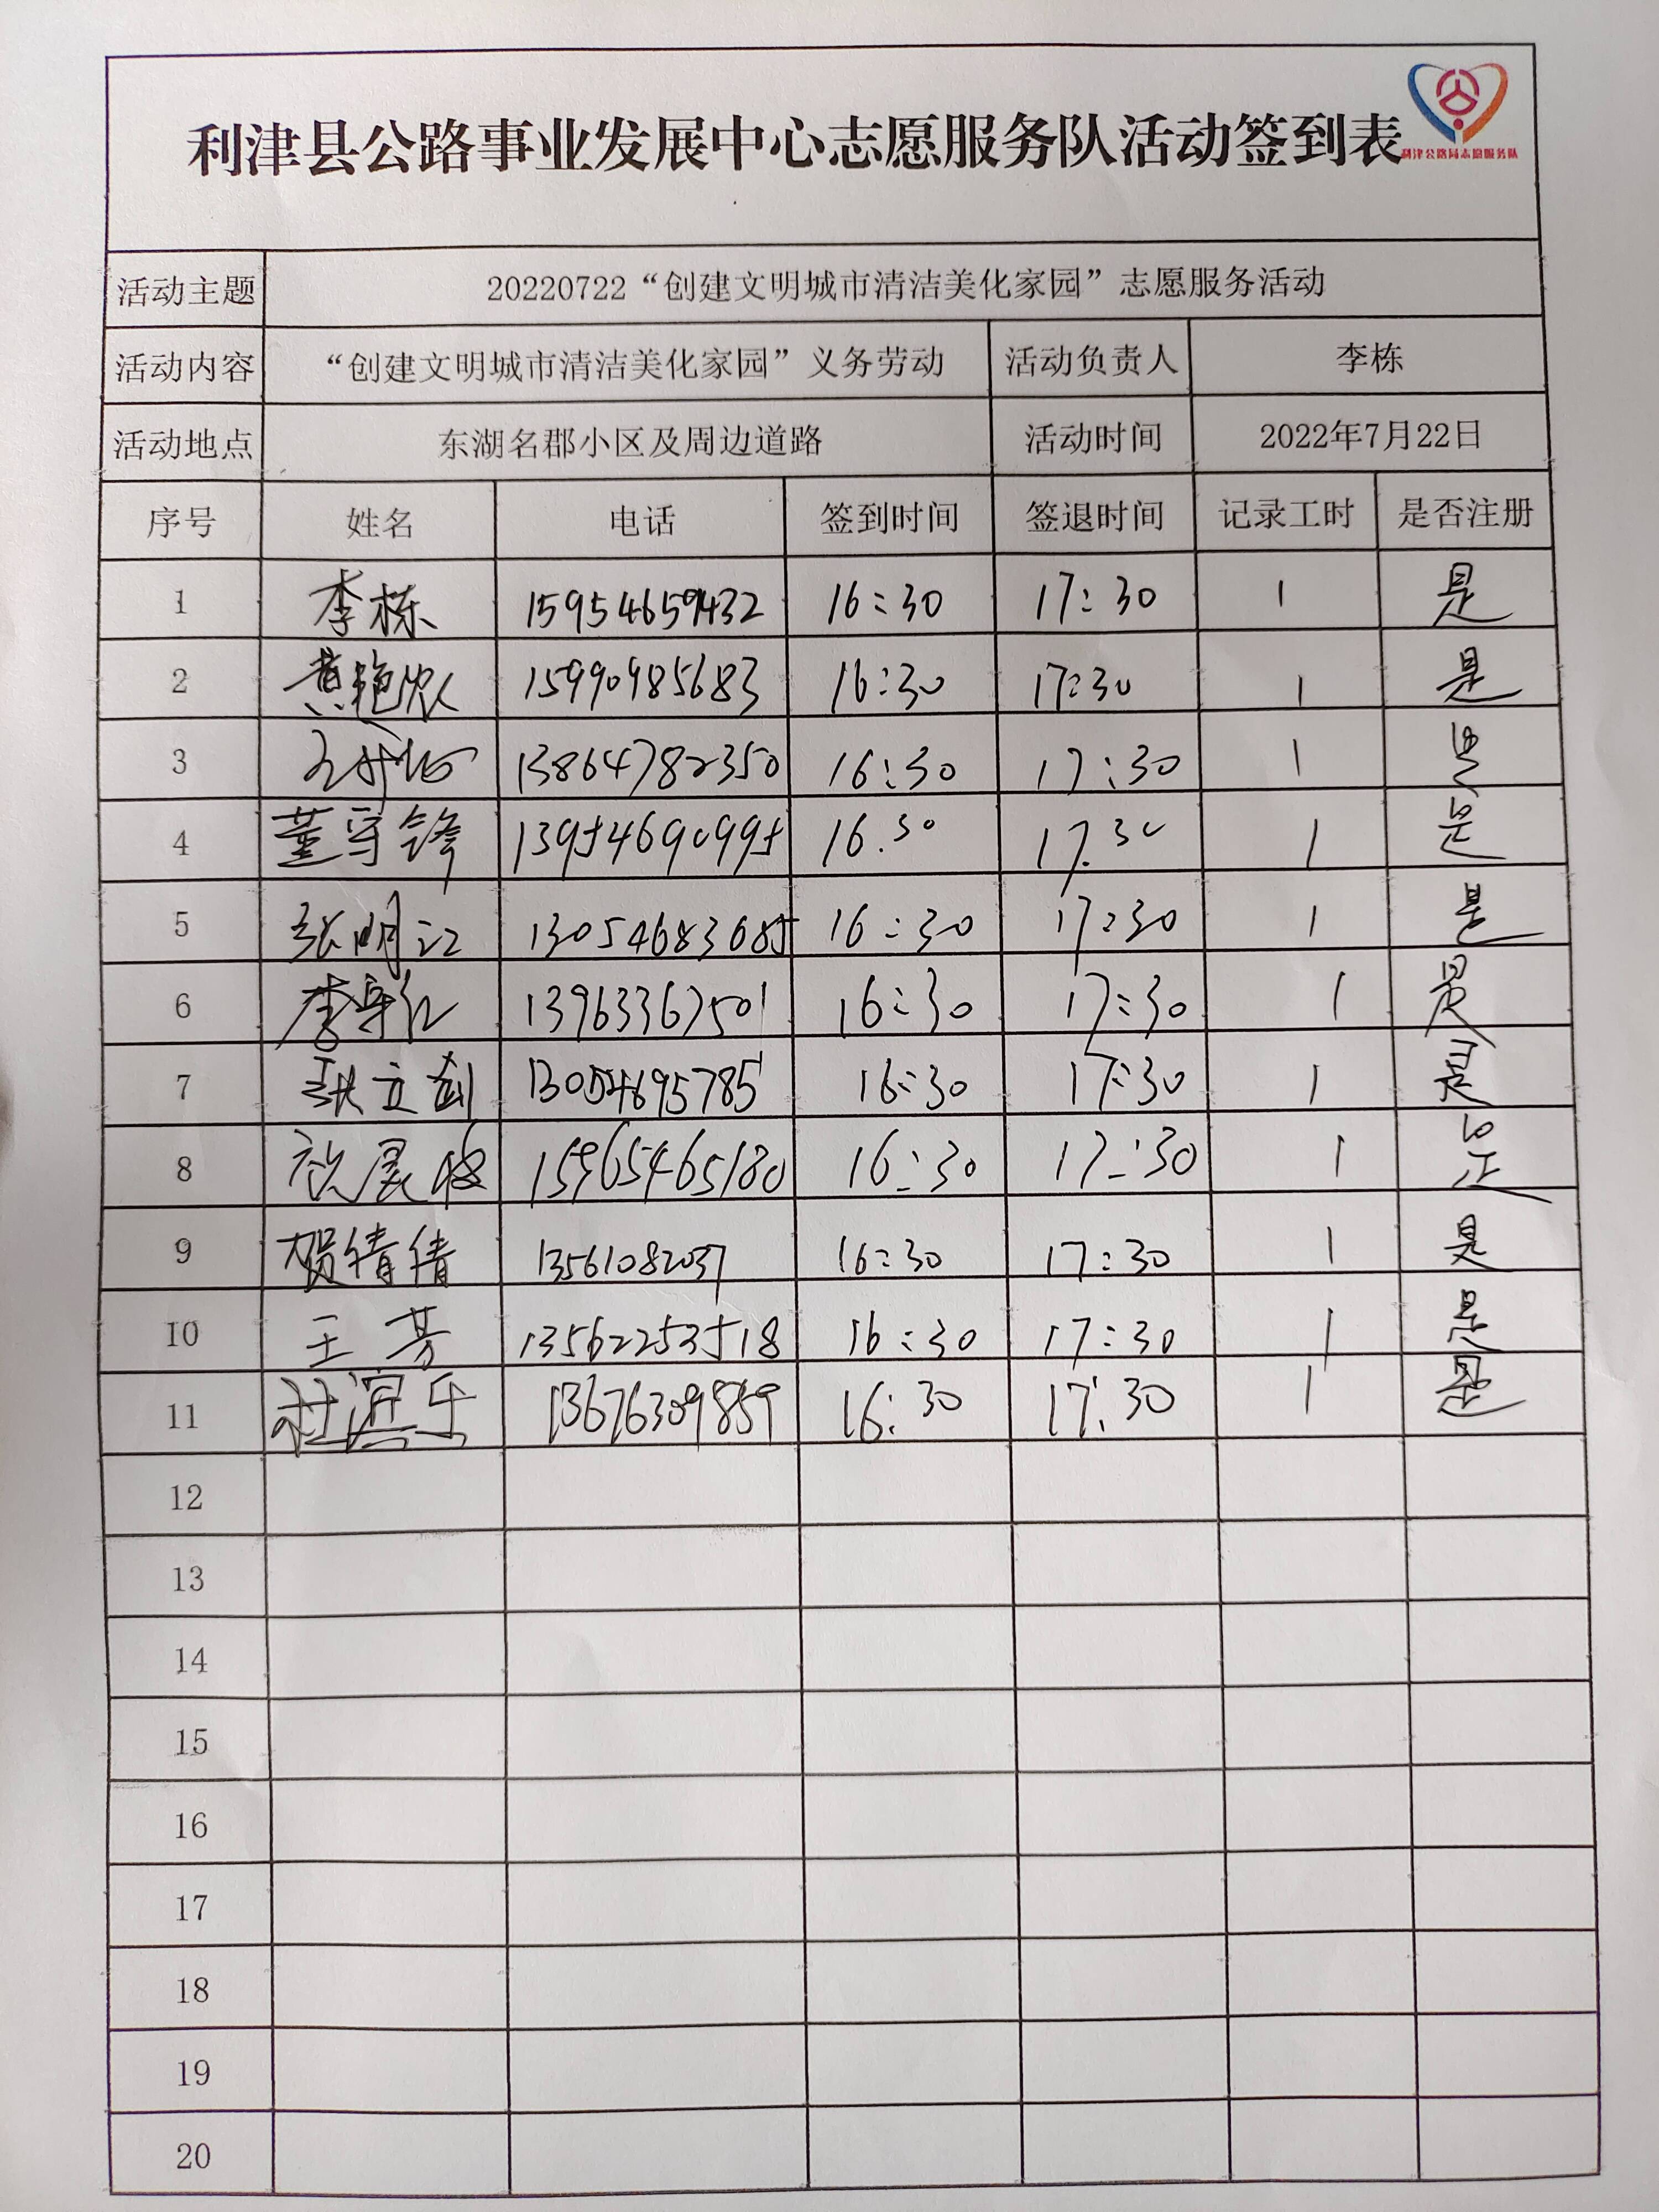 利津县公路事业发展中心志愿服务队活动签到表
利津公路局志愿服务队
活动主题 20220722“创建文明城市清洁美化家园”志愿服务活动
活动内容 “创建文明城市清洁美化家园”义务劳动 活动负责人 李栋
活动地点 东湖名郡小区及周边道路 活动时间 2022年7月22日
序号 姓名 电话 签到时间 签退时间 记录工时 是否注册
1 李栋 15954659432 16:30 17:30 1 是
2 15990985683 16:30 17:30 1 是
3 13864782350 16:30 17:30 1 是
4 董守锋 13954690995 16.30 17.30 1 是
5 张明江 13054683685 16:30 17:30 1 是
6 13963367501 16:30 17:30 1 是
7 张立剑 13054695785 16:30 17:30 1 是
8 15965465180 16:30 17:30 1 是
9 贺倩倩 13561082037 16:30 17:30 1 是
10 王芳 13562253518 16:30 17:30 1 是
11 杜滨乐 13676309859 16:30 17:30 1 是
12
13
14
15
16
17
18
19
20